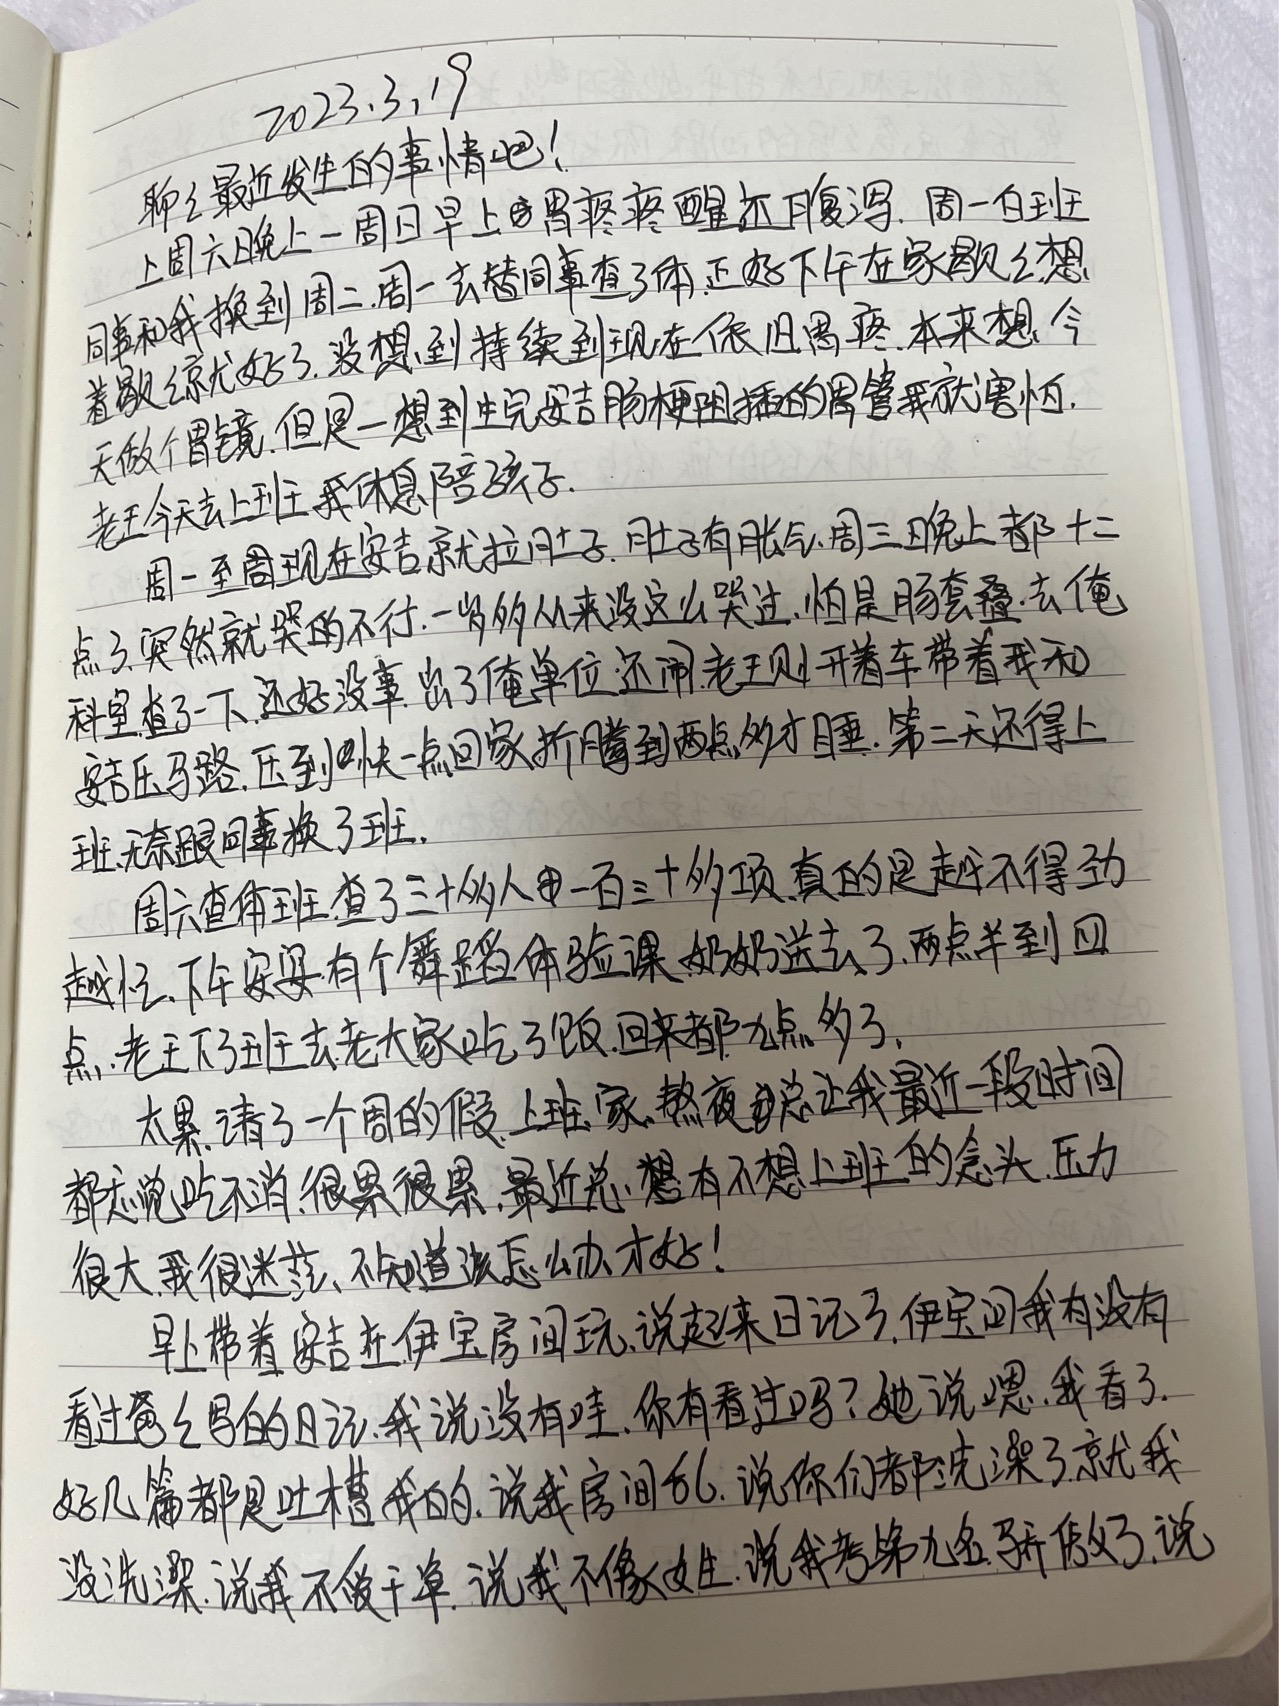 2023.3.19
聊聊最近发生的事情吧！
上周六晚上一周日早上胃疼疼醒还腹泻.周一白班
同事和我换到周二.周一去替同事查了体.正好下午在家歇歇想
着歇歇就好了.没想到持续到现在依旧胃疼.本来想今
天做个胃镜.但是一想到生完安吉肠梗阻插的胃管我就害怕.
老王今天去上班我休息陪孩子.
周一至周现在安吉就拉肚子.肚子有胀气.周三晚上都十二
点了.突然就哭的不行.一岁多从来没这么哭过.怕是肠套叠.去俺
科室查了一下.还好没事.出了俺单位还闹.老王则开着车带着我和
安吉压马路.压到快一点回家.折腾到两点多才睡.第二天还得上
班.无奈跟同事换了班.
周六查体班.查了三十多人申一百三十多项.真的是越不得劲
越忙.下午安安有个舞蹈体验课.奶奶送去了.两点半到四
点.老王下了班去老大家吃了饭.回来都九点多了.
太累.请了一个周的假.上班.家.熬夜总让我最近一段时间
都感觉吃不消.很累很累.最近总想有不想上班的念头.压力
很大.我很迷茫、不知道该怎么办才好！
早上带着安吉在伊宝房间玩.说起来日记了.伊宝问我有没有
看过爸爸写的日记.我说没有哇.你有看过吗？她说嗯.我看了.
好几篇都是吐槽我的.说我房间乱.说你们都洗澡了就我
没洗澡.说我不做干净.说我不像女生.说我考第九名骄傲了.说